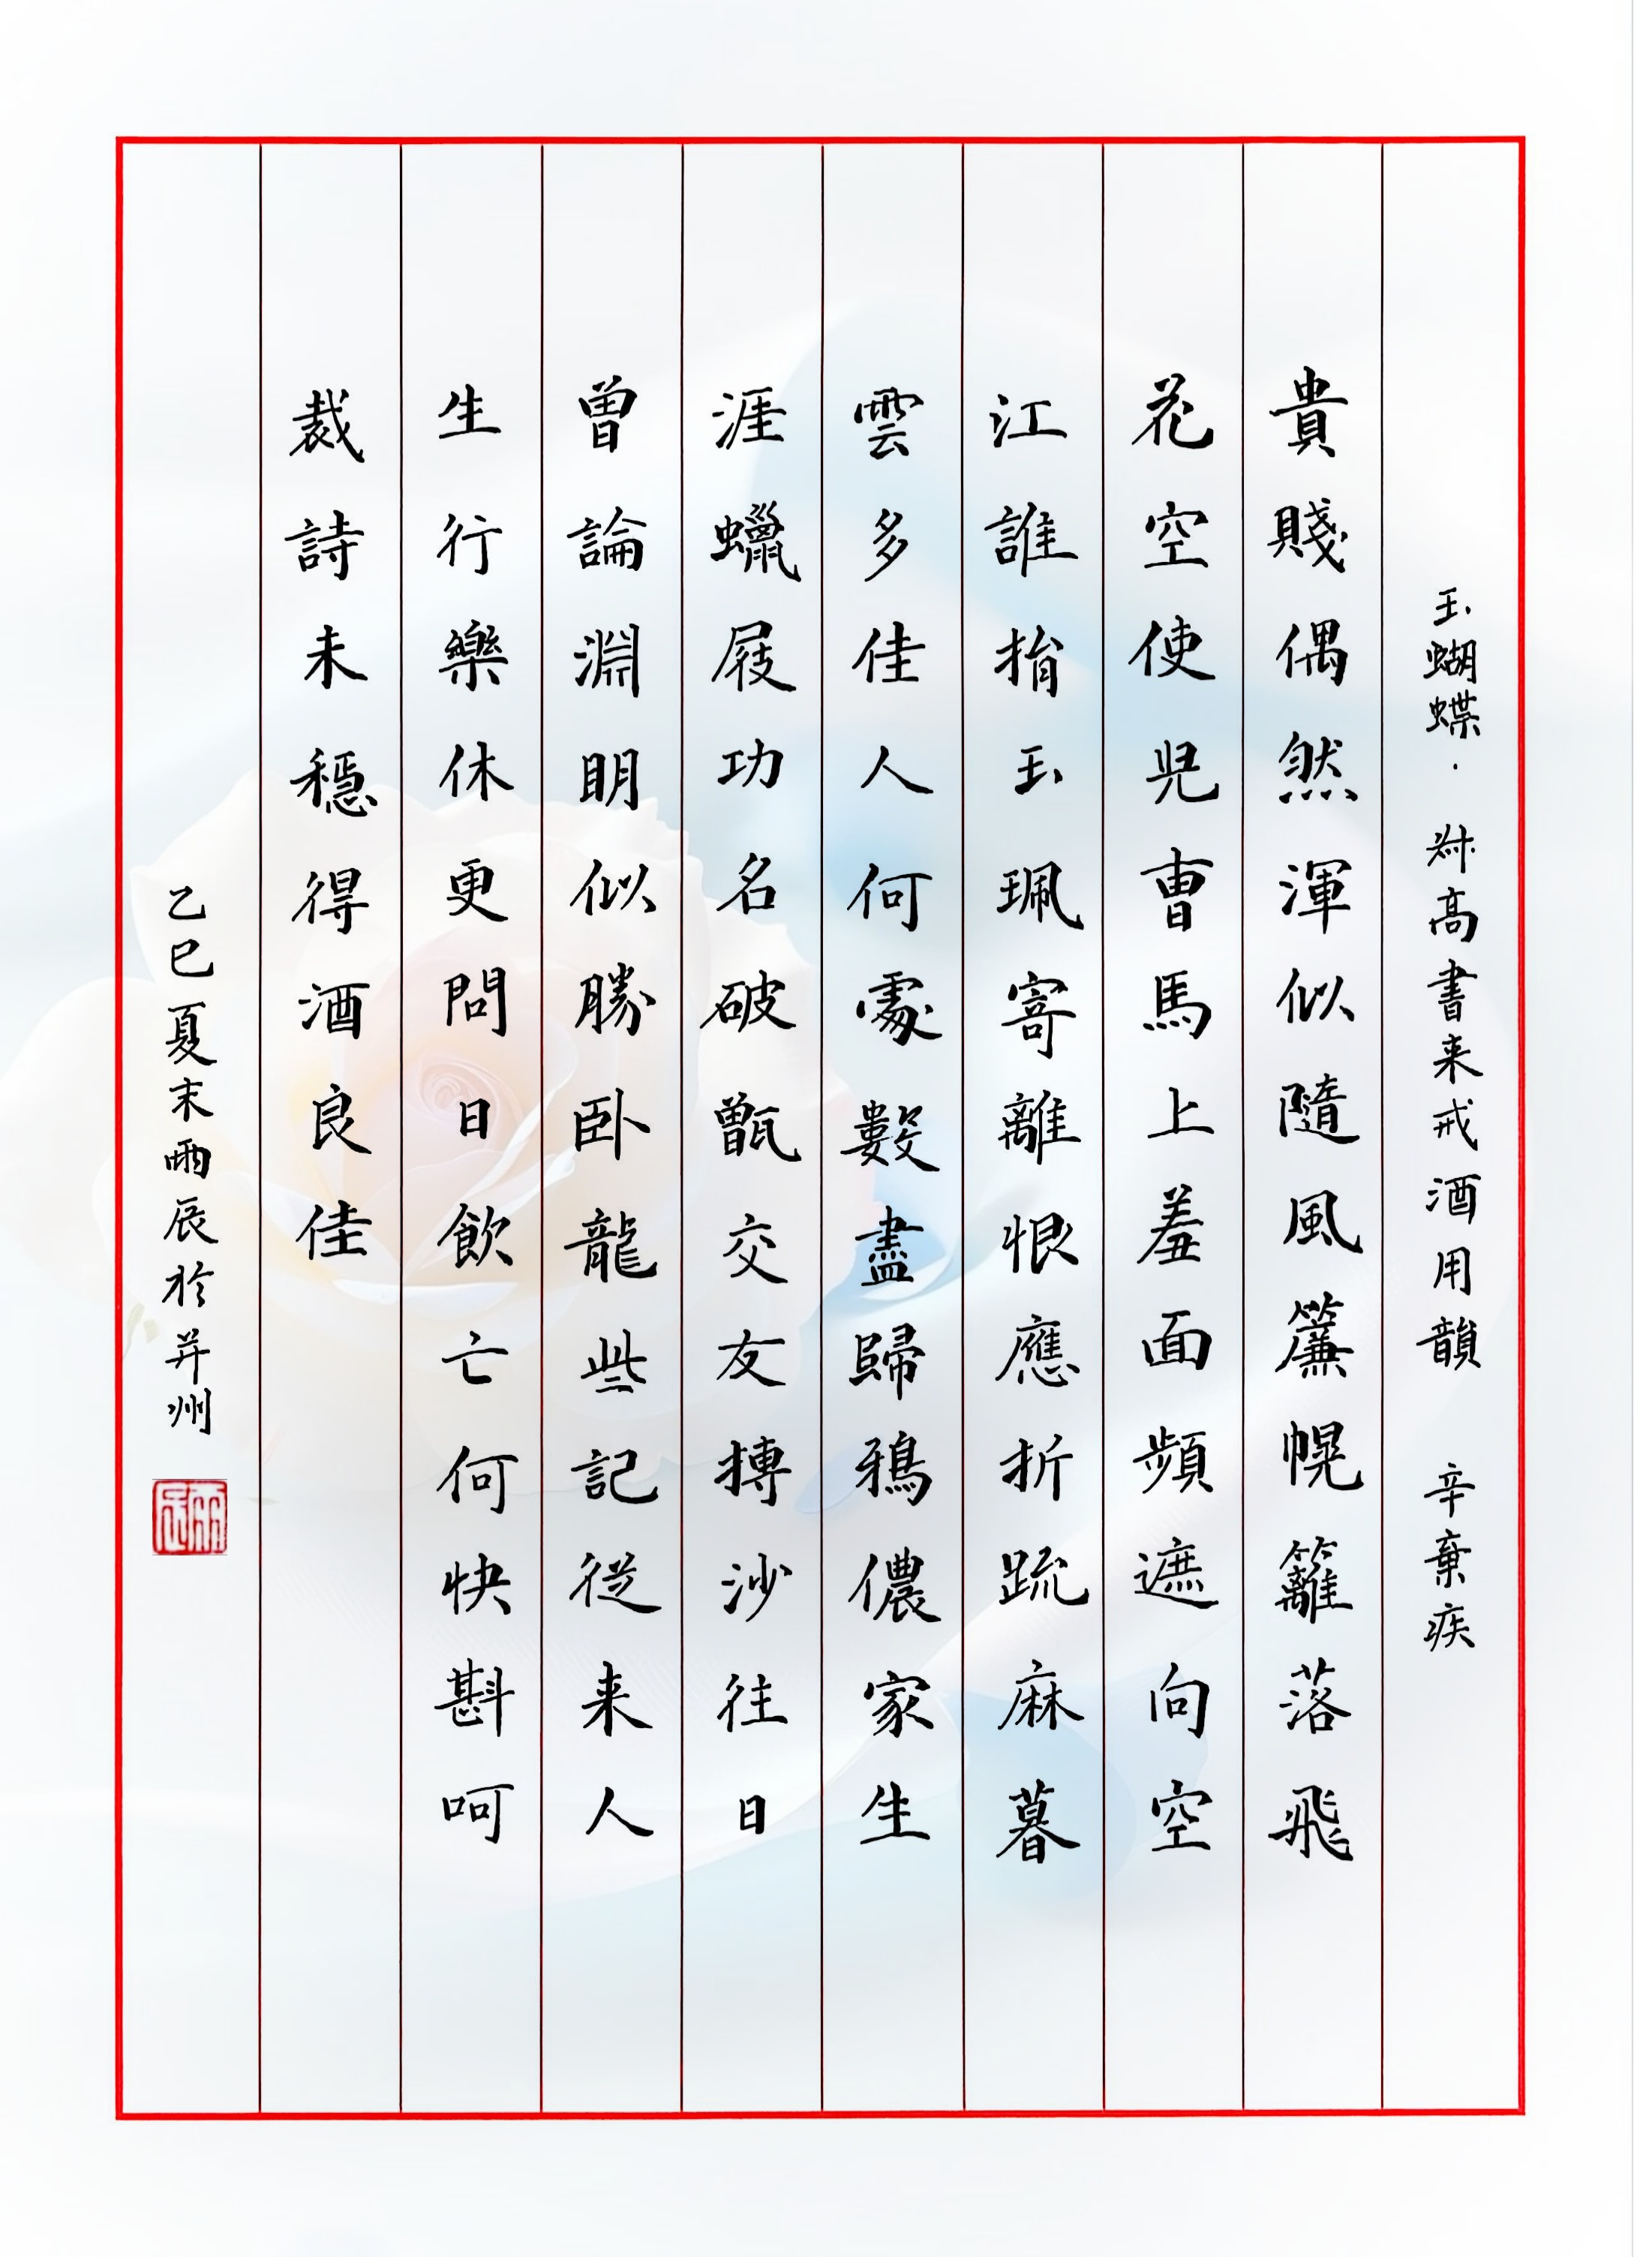 玉蝴蝶·叔高書来戒酒用韻 辛棄疾
貴賤偶然渾似隨風簾幌籬落飛
花空使兒曹馬上羞面頻遮向空
江誰捐玉珮寄離恨應折疏麻暮
雲多佳人何處數盡歸鴉儂家生
涯蠟屐功名破甑交友摶沙往日
曾論淵明似勝卧龍些記從来人
生行樂休更問日飲亡何快斟呵
裁詩未穩得酒良佳
乙巳夏末雨辰於并州
雨辰